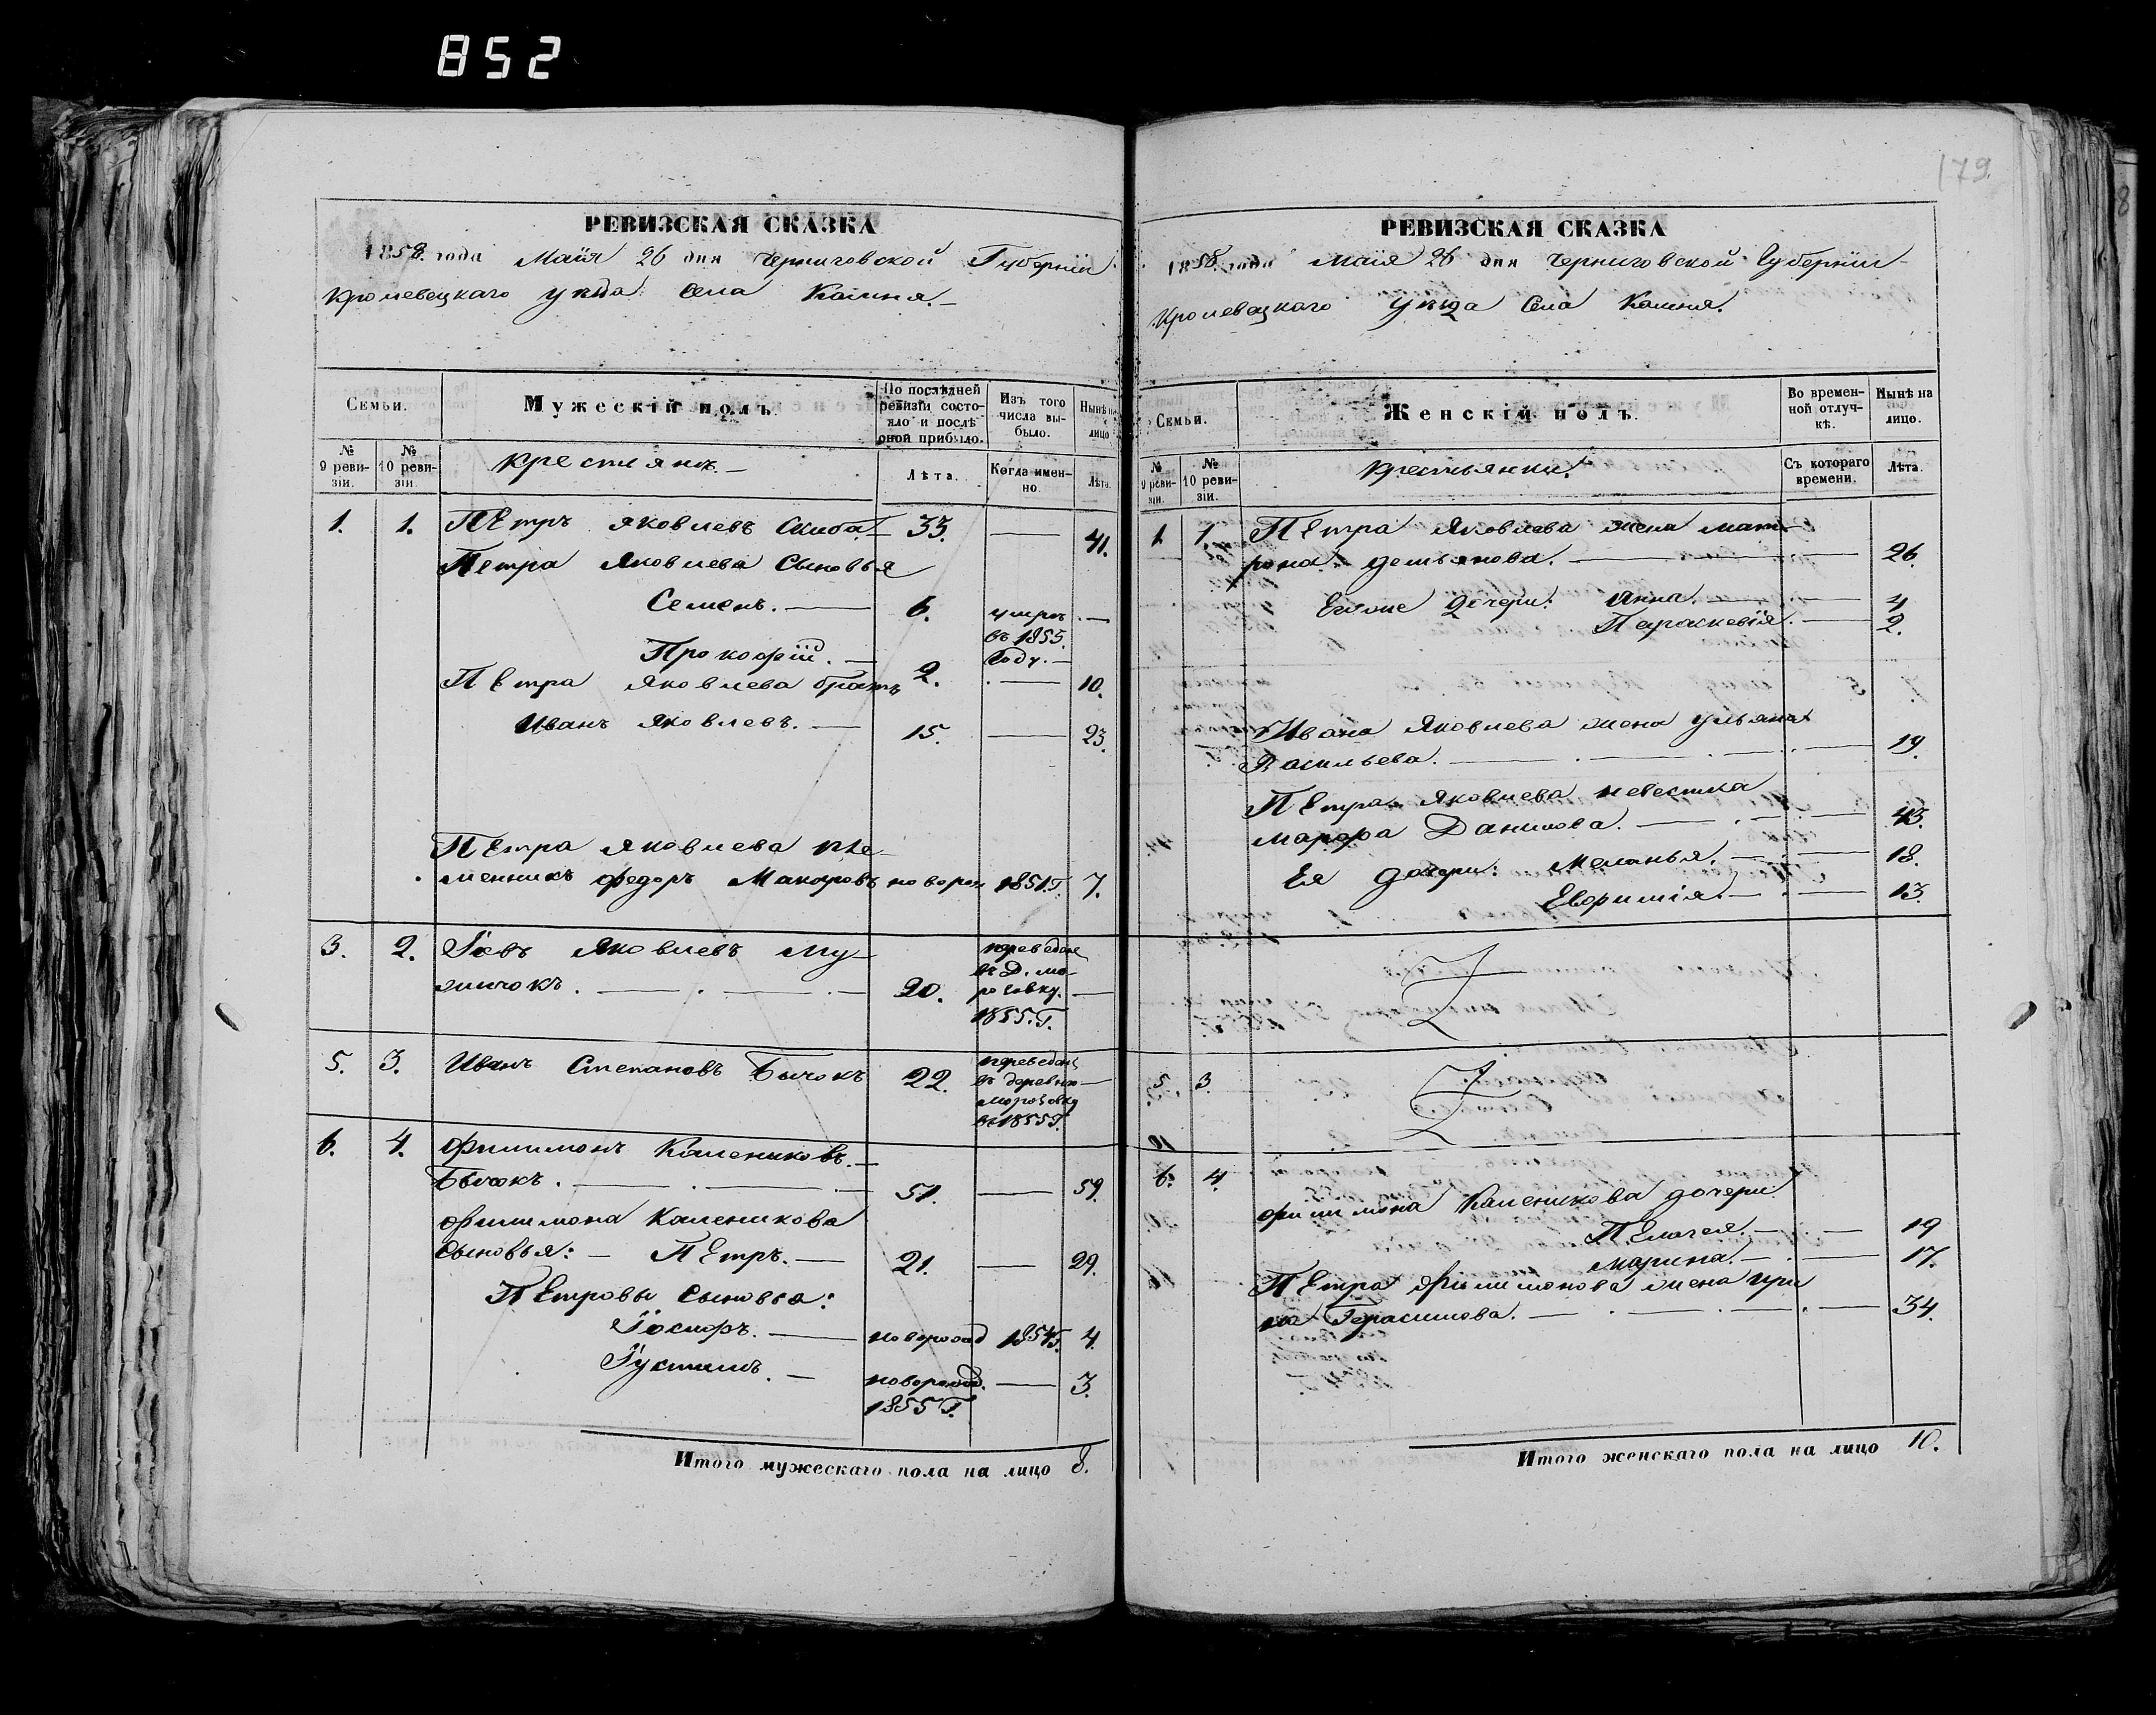 852
179.
РЕВИЗСКАЯ СКАЗКА
1858. года Маія 26 дня Черниговской Губерніи
Кролевецкаго уѣзда Села Камня.
Семьи.
Мужескій полъ.
По послѣдней ревизіи состояло и послѣ оной прибыло.
Изъ того числа выбыло.
Нынѣ на лицо
№ 9 ревизіи.
№ 10 ревизіи.
Крестьянъ.
Лѣта.
Когда именно.
Лѣта.
1. 1. Петръ Яковлевъ Скиба 33. — 41.
Петра Яковлева Сыновья
Семенъ. — 6. умре въ 1855. Году. —
Прокофій. — 2. — 10.
Петра Яковлева братъ
Иванъ Яковлевъ. — 15. — 23.
Петра Яковлева пле-
менникъ Федоръ Макаровъ новорож 1851.Г. 7.
3. 2. Іовъ Яковлевъ Му-
жичокъ. — 20. переведенъ въ Д. Морозовку. 1855.Г. —
5. 3. Иванъ Степановъ Бычокъ 22. переведенъ въ деревню Морозовку въ 1855Г. —
6. 4. Филимонъ Калениковъ. —
Бычокъ. — 51. — 59.
Филимона Каленикова
Сыновья: — Петръ. — 21. — 29.
Петровы Сыновья:
Іосифъ. — новорожд 1854Г. 4.
Іустимъ. — новорожд. 1855Г. — 3.
Итого мужескаго пола на лицо 8.
РЕВИЗСКАЯ СКАЗКА
1858. года Маія 26 дня Черниговской Губерніи
Кролевецкаго Уѣзда Села Камня.
Семьи.
Женскій полъ.
Во временной отлучкѣ.
Нынѣ на лицо.
№ 9 ревизіи.
№ 10 ревизіи.
Крестьянки.
Съ котораго времени.
Лѣта.
1. 1. Петра Яковлева жена Мат-
рона Демьянова. — 26.
Егоже дочери: Анна. — 4
Параскевія. — 2.
Ивана Яковлева жена Ульяна
Васильева. — 19.
Петра Яковлева невестка
Марфа Данилова. — 43.
Ея дочери: Меланья. — 18.
Евфимія. — 13.
5. 3.
6. 4.
Филимона Каленикова дочери
Пелагея. — 19
Марина. — 17.
Петра Филимонова жена Ири
на Герасимова. — 34.
Итого женскаго пола на лицо 10.